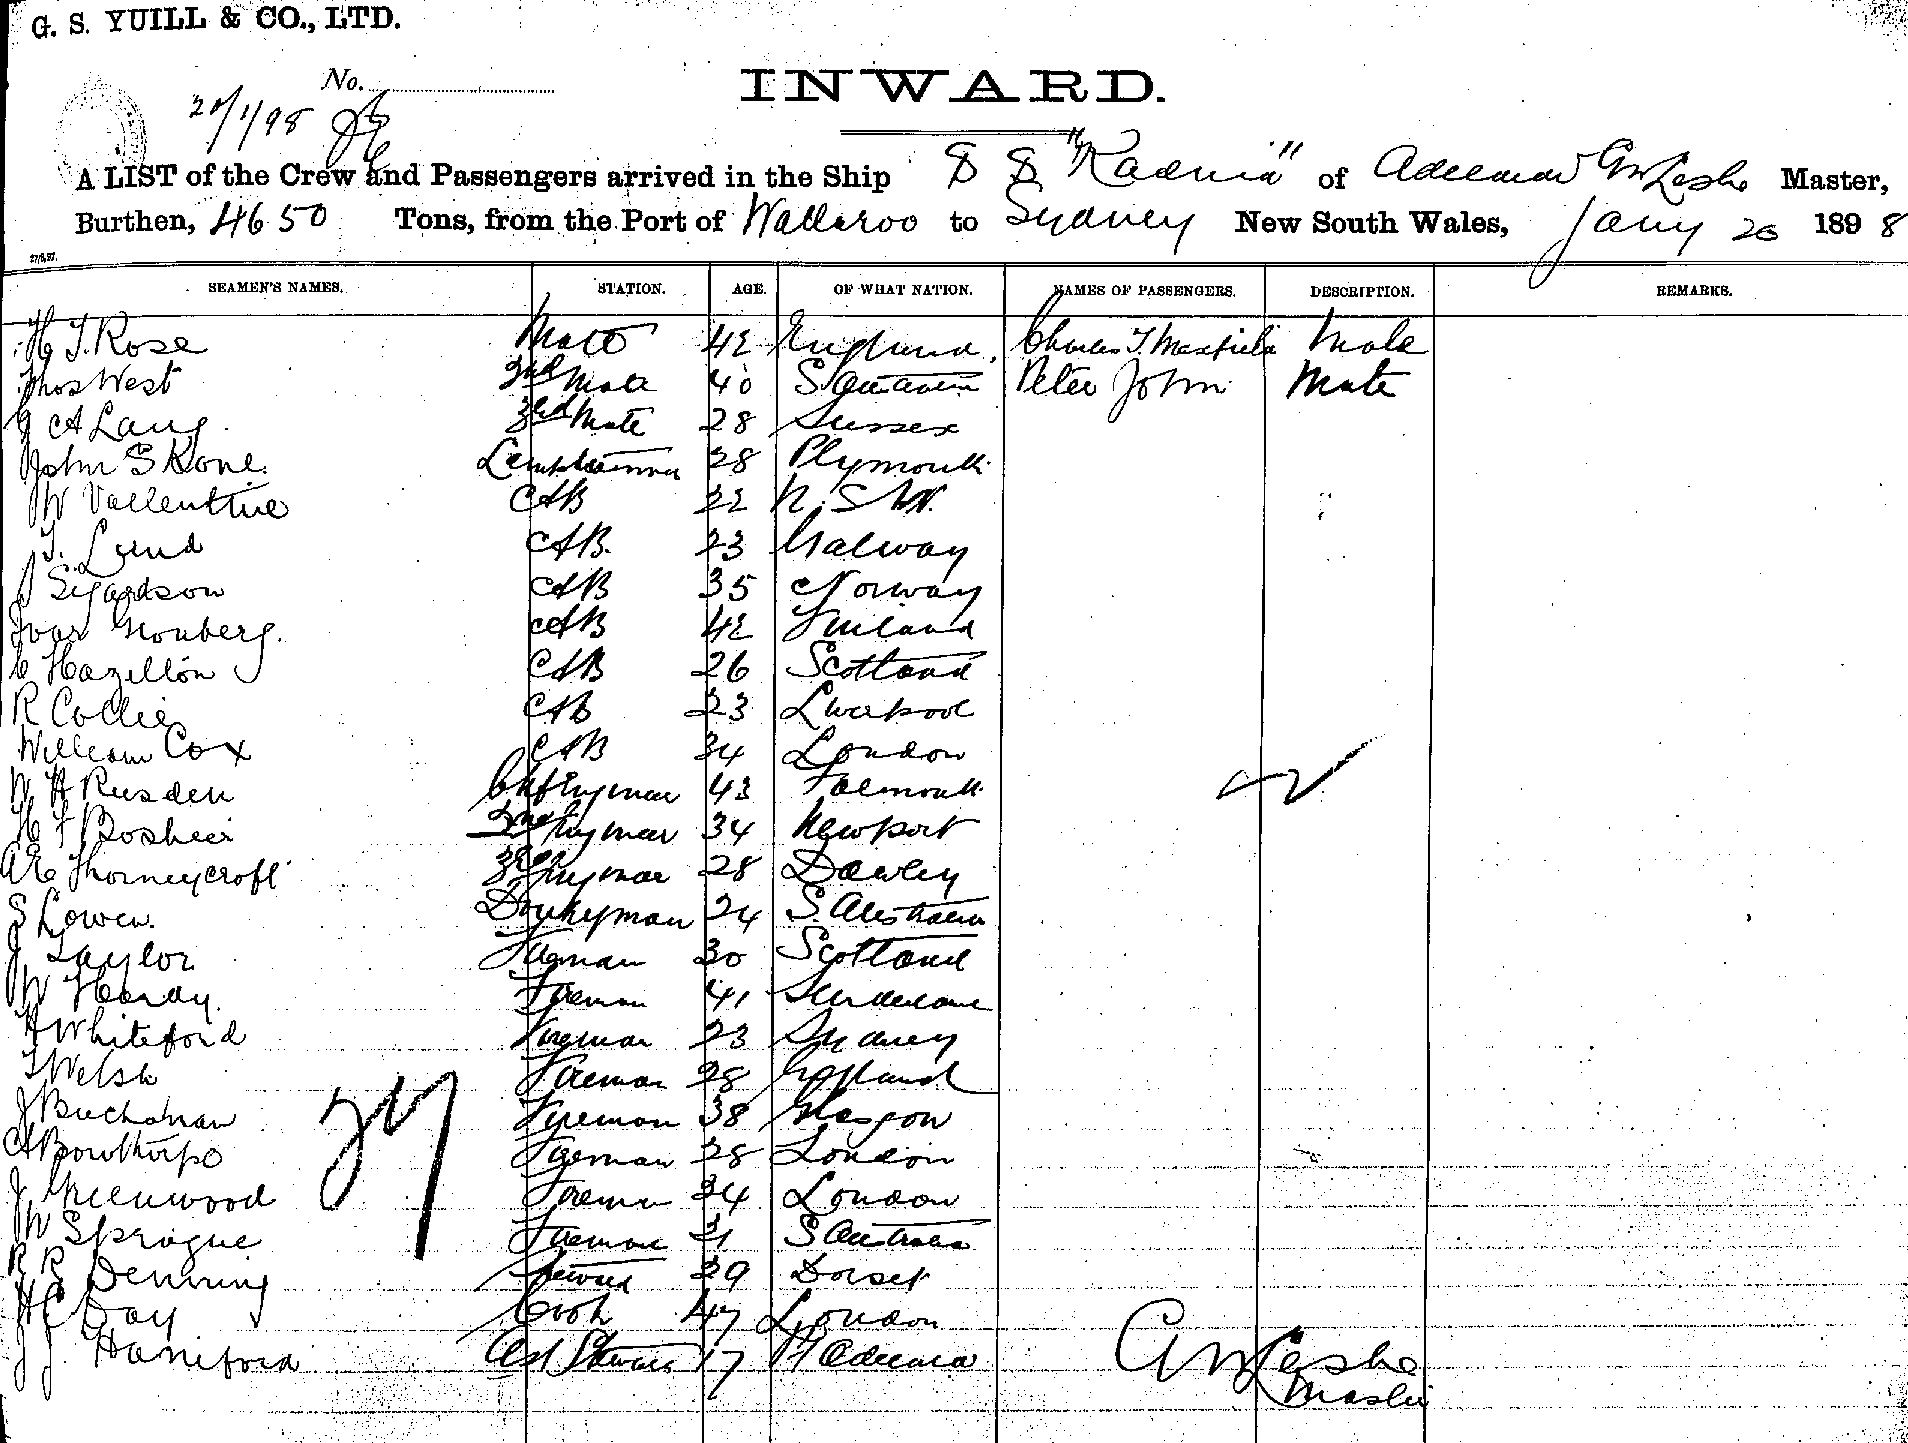 G. S. YUILL & CO., LTD.
No.
20/1/98
INWARD.
A LIST of the Crew and Passengers arrived in the Ship S S "Kadina" of Adelaide Leslie Master,
Burthen, 4650 Tons, from the Port of Wallaroo to Sydney New South Wales, Jany 20 1898
27/8/97.
SEAMEN'S NAMES. STATION. AGE. OF WHAT NATION. NAMES OF PASSENGERS. DESCRIPTION. REMARKS.
H J. Rose Mate 42 England Charles J. Maxfield Male
Thos West 2nd Mate 40 S Australia Peter John Male
A Lang 3rd Mate 28 Sussex
John S Kone Lamptrimmer 28 Plymouth
W Vallentine AB 22 N. S W.
T. Lund AB. 23 Galway
AB 35 Norway
Ivar AB 42 Finland
C Hazelton AB 26 Scotland
R Collier AB 23 Liverpool
William Cox AB 34 London
W H Rusden Chf Engineer 43 Falmouth
H F Bosheir 2nd Engineer 34 Newport
A E Thorneycroft 3rd Engineer 28 Dawley
S Lowen Donkeyman 24 S. Australia
J Taylor Fireman 30 Scotland
W Hardy. Fireman 41 Sunderland
A Whiteford Fireman 23 Sydney
T Welsh Fireman 28 England
J Buchanan Fireman 38 Glasgow
A Bowthorpe Fireman 28 London
J Greenwood Fireman 34 London
W Sprague Fireman 21 S Australia
R R Denning Steward 29 Dorset
H C Day Cook 47 London
J J. Haniford Asst Steward 17 Pt Adelaide
27
Leslie
Master